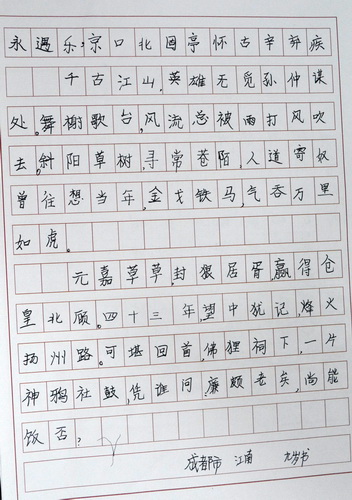 永遇乐,京口北固亭怀古辛弃疾
千古江山,英雄无觅孙仲谋
处。舞榭歌台,风流总被雨打风吹
去。斜阳草树,寻常巷陌,人道寄奴
曾住想当年,金戈铁马,气吞万里
如虎。
元嘉草草,封狼居胥,赢得仓
皇北顾。四十三年,望中犹记,烽火
扬州路。可堪回首,佛狸祠下,一片
神鸦社鼓,凭谁问,廉颇老矣,尚能
饭否,
成都市 江南 书